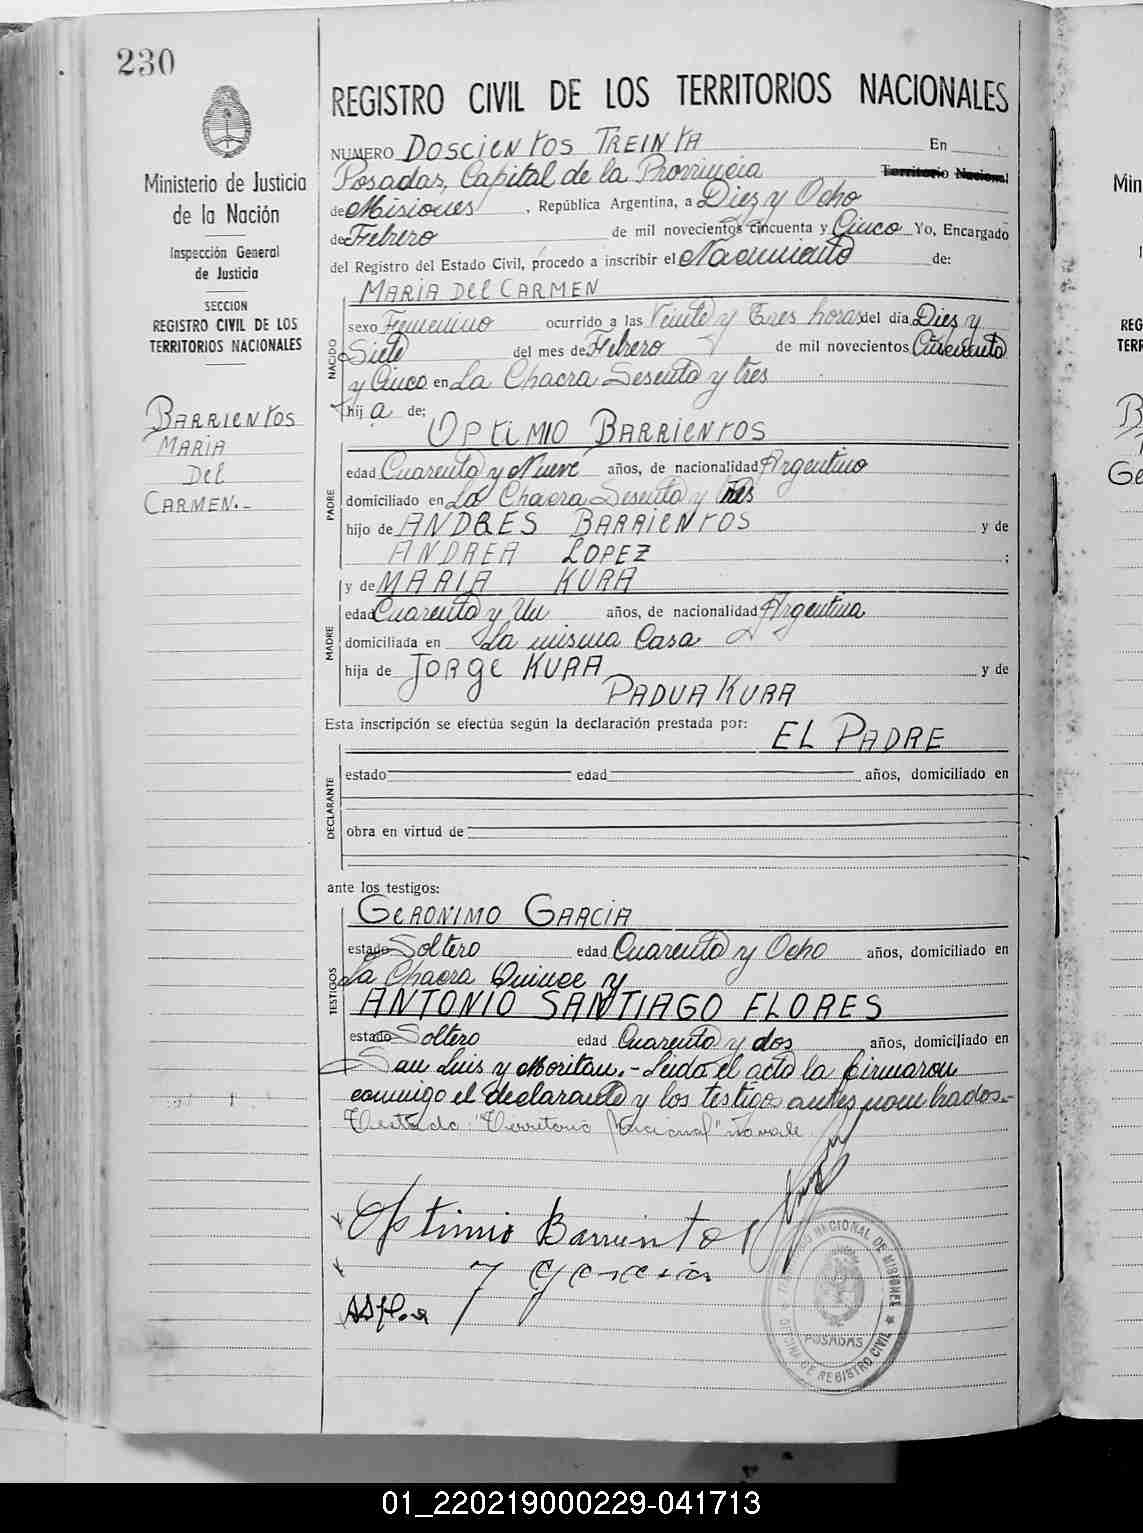 230
Ministerio de Justicia
de la Nación
Inspección General
de Justicia
SECCION
REGISTRO CIVIL DE LOS
TERRITORIOS NACIONALES
BARRIENTOS
MARIA
DEL
CARMEN.-
REGISTRO CIVIL DE LOS TERRITORIOS NACIONALES
NUMERO DOSCIENTOS TREINTA En
Posadas, Capital de la Provincia Territorio Nacional
de Misiones, República Argentina, a Diez y Ocho
de Febrero de mil novecientos cincuenta y Cinco Yo, Encargado
del Registro del Estado Civil, procedo a inscribir el Nacimiento de:
MARIA DEL CARMEN
NACIDO
sexo Femenino ocurrido a las Veinte y Tres horas del día Diez y
Siete del mes de Febrero de mil novecientos Cincuenta
y Cinco en La Chacra Sesenta y tres
hij a de:
OPTIMIO BARRIENTOS
PADRE
edad Cuarenta y Nueve años, de nacionalidad Argentino
domiciliado en La Chacra Sesenta y Tres
hijo de ANDRES BARRIENTOS y de
ANDREA LOPEZ ;
y de MARIA KURA
MADRE
edad Cuarenta y Un años, de nacionalidad Argentina
domiciliada en La misma Casa
hija de JORGE KURA y de
PADUA KURA
Esta inscripción se efectúa según la declaración prestada por: EL PADRE
DECLARANTE
estado edad años, domiciliado en
obra en virtud de
ante los testigos:
GERONIMO GARCIA
TESTIGOS
estado Soltero edad Cuarenta y Ocho años, domiciliado en
La Chacra Quince y
ANTONIO SANTIAGO FLORES
estado Soltero edad Cuarenta y dos años, domiciliado en
San Luis y Moritan.- Leida el acta la firmaron
conmigo el declarante y los testigos antes nombrados.-
Testado: "Territorio Nacional" no vale
Optimio Barrientos
J Garcia
NACIONAL DE MISIONES
OFICINA DE REGISTRO CIVIL
POSADAS
Min
REG
TERR
B
Ge
01_220219000229-041713